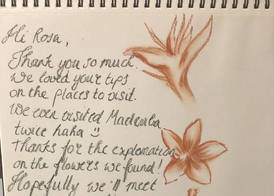 Hi Rosa,
Thank you so much.
We loved your tips
on the places to visit.
We even visited
twice haha :)
Thanks for the explanation
on the flowers we found!
Hopefully we'll meet